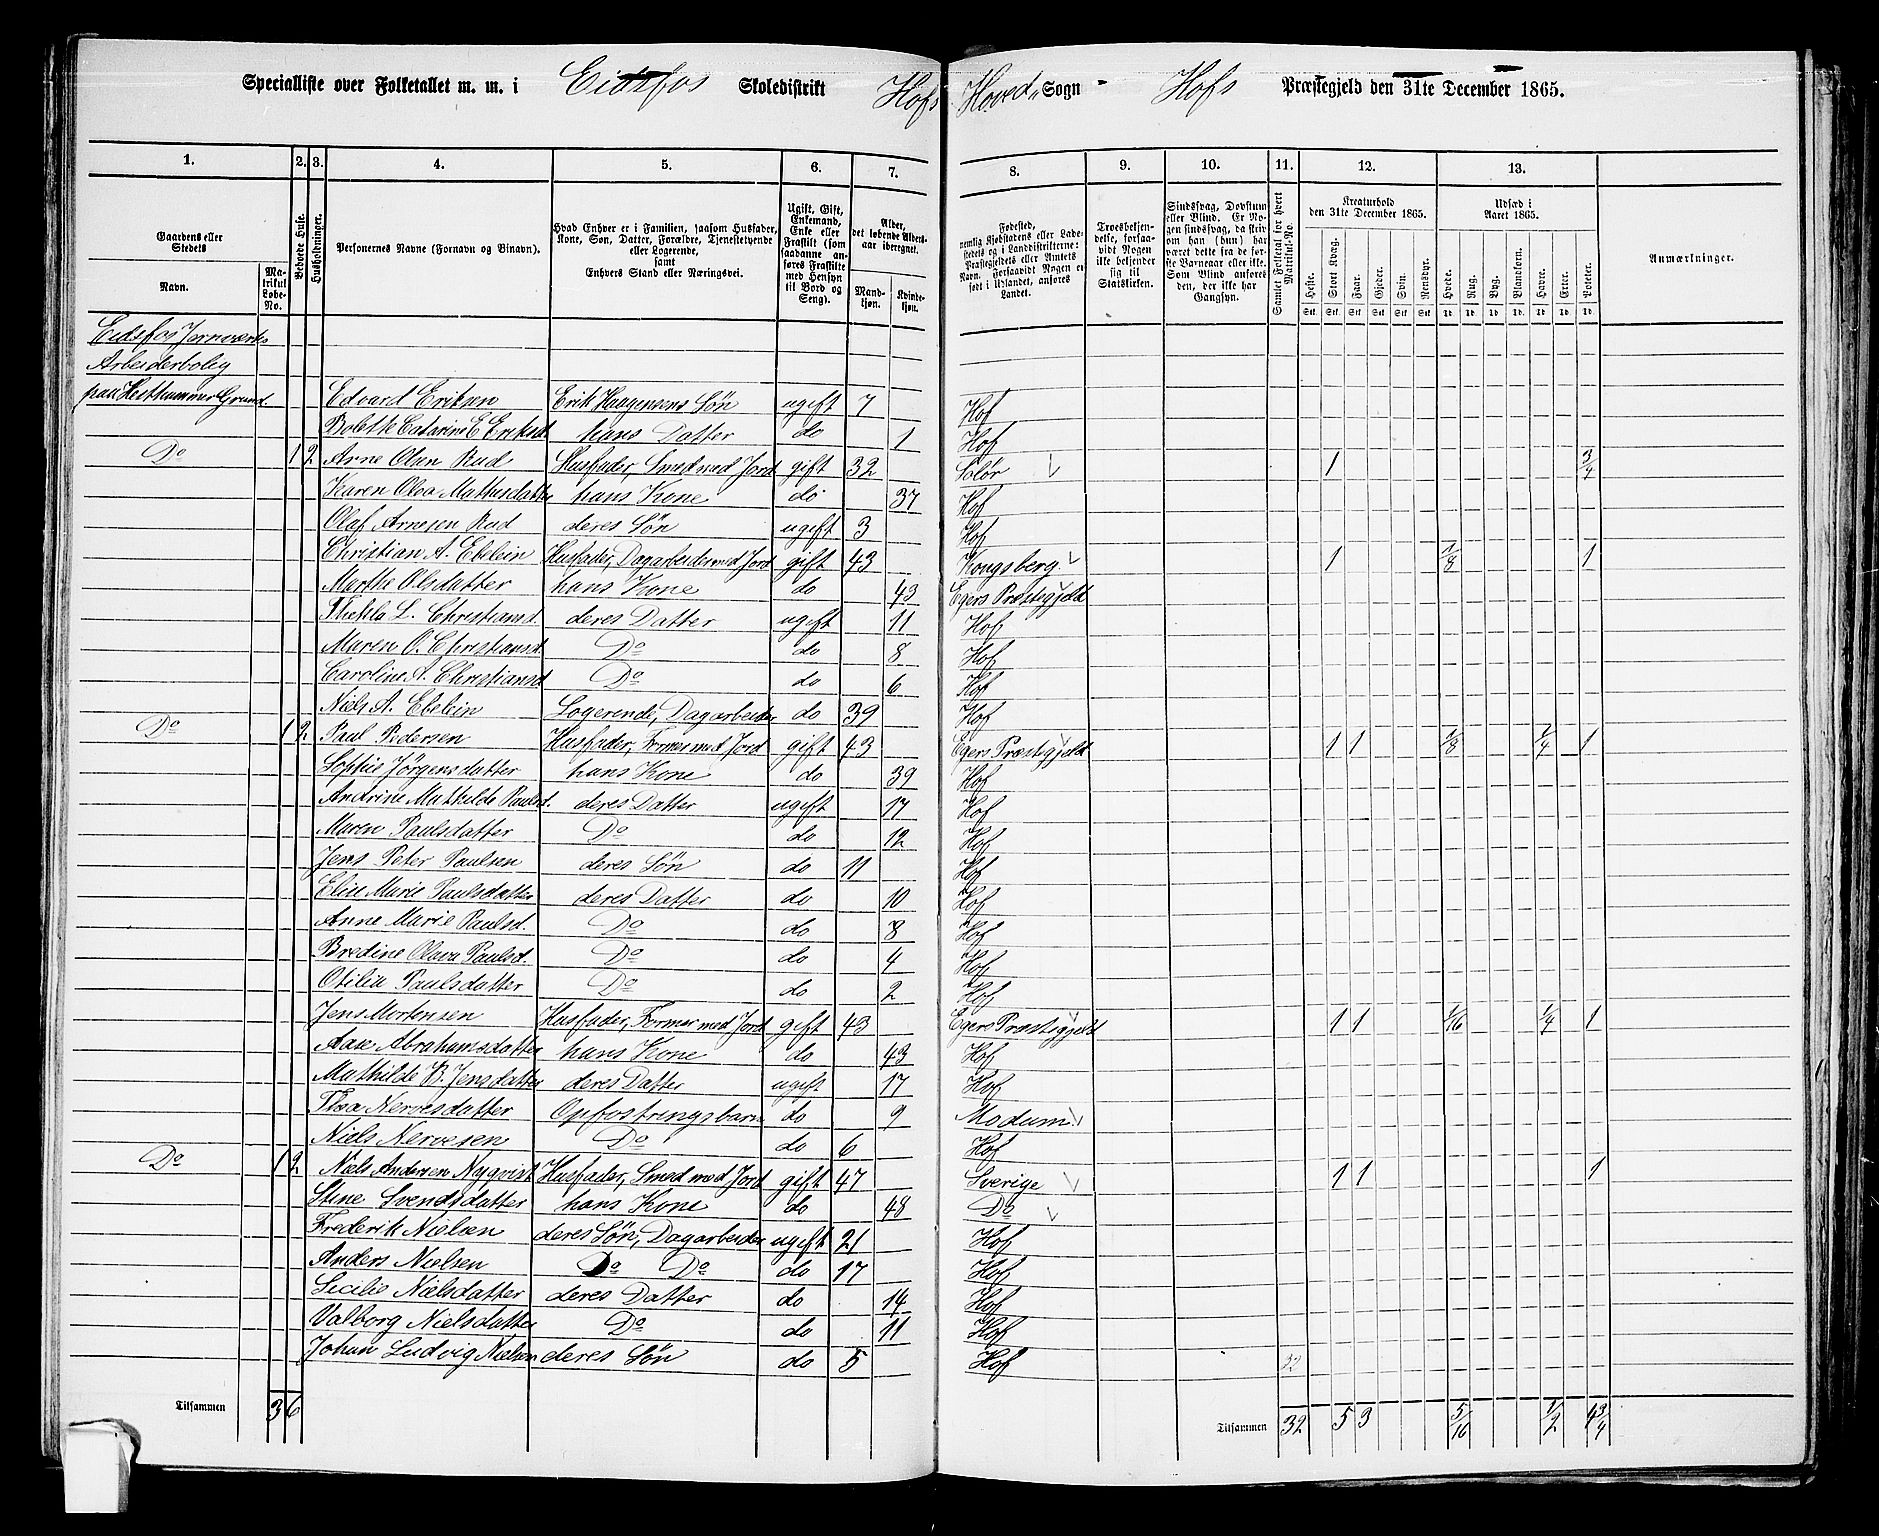 Specialliste over Folketallet m. m. i Eidsfos Skoledistrikt Hofs Hoved Sogn Hofs Præstegjeld den 31te December 1865.
1. 2. 3. 4. 5. 6. 7. 8. 9. 10. 11. 12. 13.
Gaardens eller Stedets
Navn.
Matrikul Løbe-No.
Beboede Huse.
Husholdninger.
Personernes Navne (Fornavn og Binavn).
Hvad Enhver er i Familien, saasom Husfader, Kone, Søn, Datter, Forældre, Tjenestetyende eller Logerende, samt Enhvers Stand eller Næringsvei.
Ugift, Gift, Enkemand, Enke eller Fraskilt (som saadanne anføres Fraskilte med Hensyn til Bord og Seng).
Alder, det løbende Aldersaar iberegnet.
Mandkjøn. Kvindekjøn.
Fødested, nemlig Kjøbstadens eller Ladestedets og i Landdistrikterne: Præstegjeldets eller Amtets Navn. Forsaavidt Nogen er født i Udlandet, anføres Landet.
Troesbekjendelse, forsaavidt Nogen ikke bekjender sig til Statskirken.
Sindssvag, Døvstum eller Blind. Er Nogen sindssvag, da skriv om han (hun) har været dette fra de første Barneaar eller ikke. Som Blind anføres den, der ikke har Gangsyn.
Samlet Folketal for hvert Matrikul-No.
Kreaturhold den 31te December 1865.
Heste. Stort Kvæg. Faar. Gjeder. Svin. Rensdyr.
Udsæd i Aaret 1865.
Hvede. Rug. Byg. Blandkorn. Havre. Erter. Poteter.
Anmærkninger.
Eidsfos Jernværks
Arbeiderbolig
paa Hesthammer Grund. Edvard Eriksen Erik Haagensens Søn ugift 7 Hof
Bolette Catarine E Eriksd hans Datter do 1 Hof
Do 1 2 Arne Olsen Rud Husfader, Smed med Jord gift 32 Solør 1 3/4
Karen Olea Mathisdatter hans Kone do 37 Hof
Olaf Arnesen Rud deres Søn ugift 3 Hof
Christian A. Ebelein Husfader, Dagarbeider med Jord gift 43 Kongsberg 1 1/8 1
Marthe Olsdatter hans Kone do 43 Egers Præstegjeld
Thekla L. Christiansd. deres Datter ugift 11 Hof
Maren O. Christiansd Do do 8 Hof
Caroline A. Christiansd Do do 6 Hof
Niels A. Ebelein Logerende, Dagarbeider do 39 Hof
Do 1 2 Paul Pedersen Husfader, Former med Jord gift 43 Egers Præstegjeld 1 1 1/8 1/4 1
Sophie Jørgensdatter hans Kone do 39 Hof
Andrine Mathilde Paulsd. deres Datter ugift 17 Hof
Maren Paulsdatter Do do 12 Hof
Jens Peter Paulsen deres Søn do 11 Hof
Elise Marie Paulsdatter deres Datter do 10 Hof
Anne Marie Paulsd. Do do 8 Hof
Bredine Olava Paulsd. Do do 4 Hof
Otilia Paulsdatter Do do 2 Hof
Jens Mortensen Husfader, Former med Jord gift 43 Egers Præstegjeld 1 1 1/16 1/4 1
Aase Abrahamsdatter hans Kone do 43 Hof
Mathilde B. Jensdatter deres Datter ugift 17 Hof
Thea Nervesdatter Opfostringsbarn do 9 Modum
Niels Nervesen Do do 6 Hof
Do 1 2 Niels Andersen Nyqvist Husfader, Smed med Jord gift 47 Sverige 1 1 1
Stine Svendsdatter hans Kone do 48 Do
Frederik Nielsen deres Søn, Dagarbeider ugift 21 Hof
Anders Nielsen Do Do do 17 Hof
Secilie Nielsdatter deres Datter do 14 Hof
Valborg Nielsdatter Do do 11 Hof
Johan Ludvig Nielsen deres Søn do 5 Hof 32
Tilsammen 3 6
Tilsammen 32 5 3 5/16 1/2 4 3/4